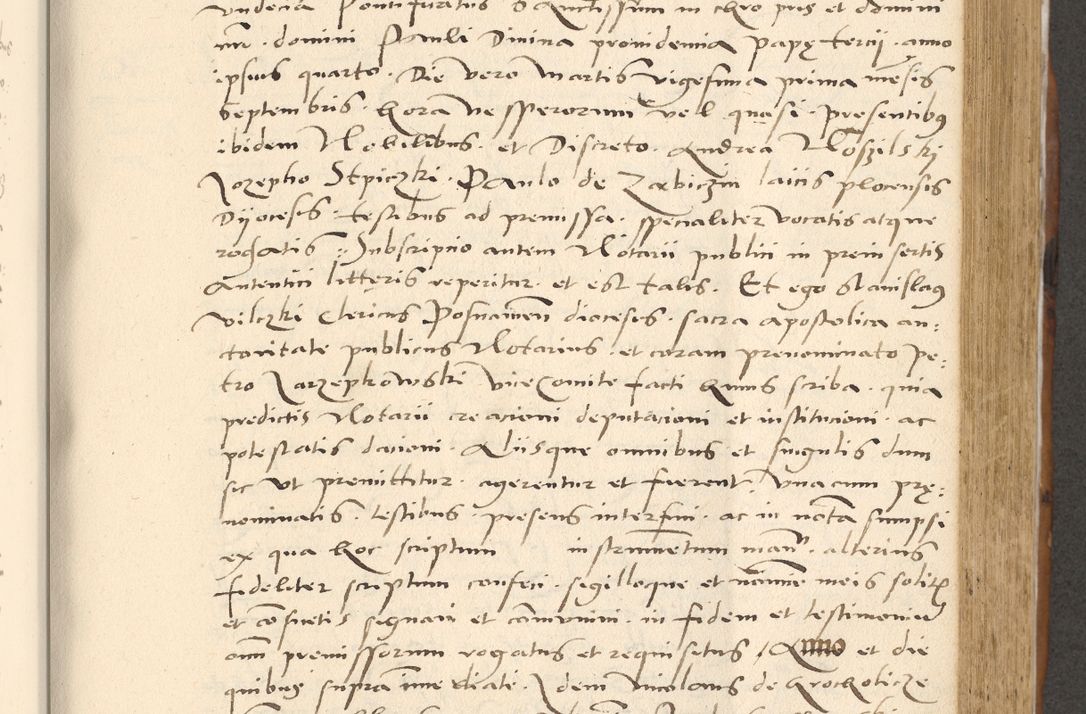 undecia Pontificatus Sanctissimi in chro pris et domini
nri . domini Pauli Divina providencia papę tercij . anno
ipsius quarto . Die vero Martis vigesima prima mēsis
Septembris . hora vesperorum vell quasi . presentibus
ibidem Nobilibus . et Discreto . Andrea
Jozepho Stpiczki . Paulo de laicis plocensis
Dyocesis . testibus ad premissa . specialiter vocatis atque
rogatis :: Subscriptio autem Notarii publici in preinsertis
Autentici litteris reperitur . et est talis . Et ego Stanislaus
Vilczki Clericus Posnanien diocesis . sacra apostolica au:
ctoritate publicus Notarius . et coram prenominato Pe:
tro Jarzepkowski ViceComite facti huius scriba . quia
predictis Notarii creacioni deputacioni et institucioni . ac
potestatis dacioni . Aliisque omnibus et singulis dum
sic ut premittitur . agerentur et fierent . Unacum prę:
nominatis . testibus . presens interfui . ac in nota sumpsi
ex qua hoc scriptum instrumentum manu . alterius
fideliter scriptum confeci . sigilloque et nomine meis solitis
et cōsuetis signavi et communivi . in fidem et testimonium
omī premissorum rogatus et requisitus / Anno et die
quibus supra immediate . Idem Nicolaus de Krockolicze